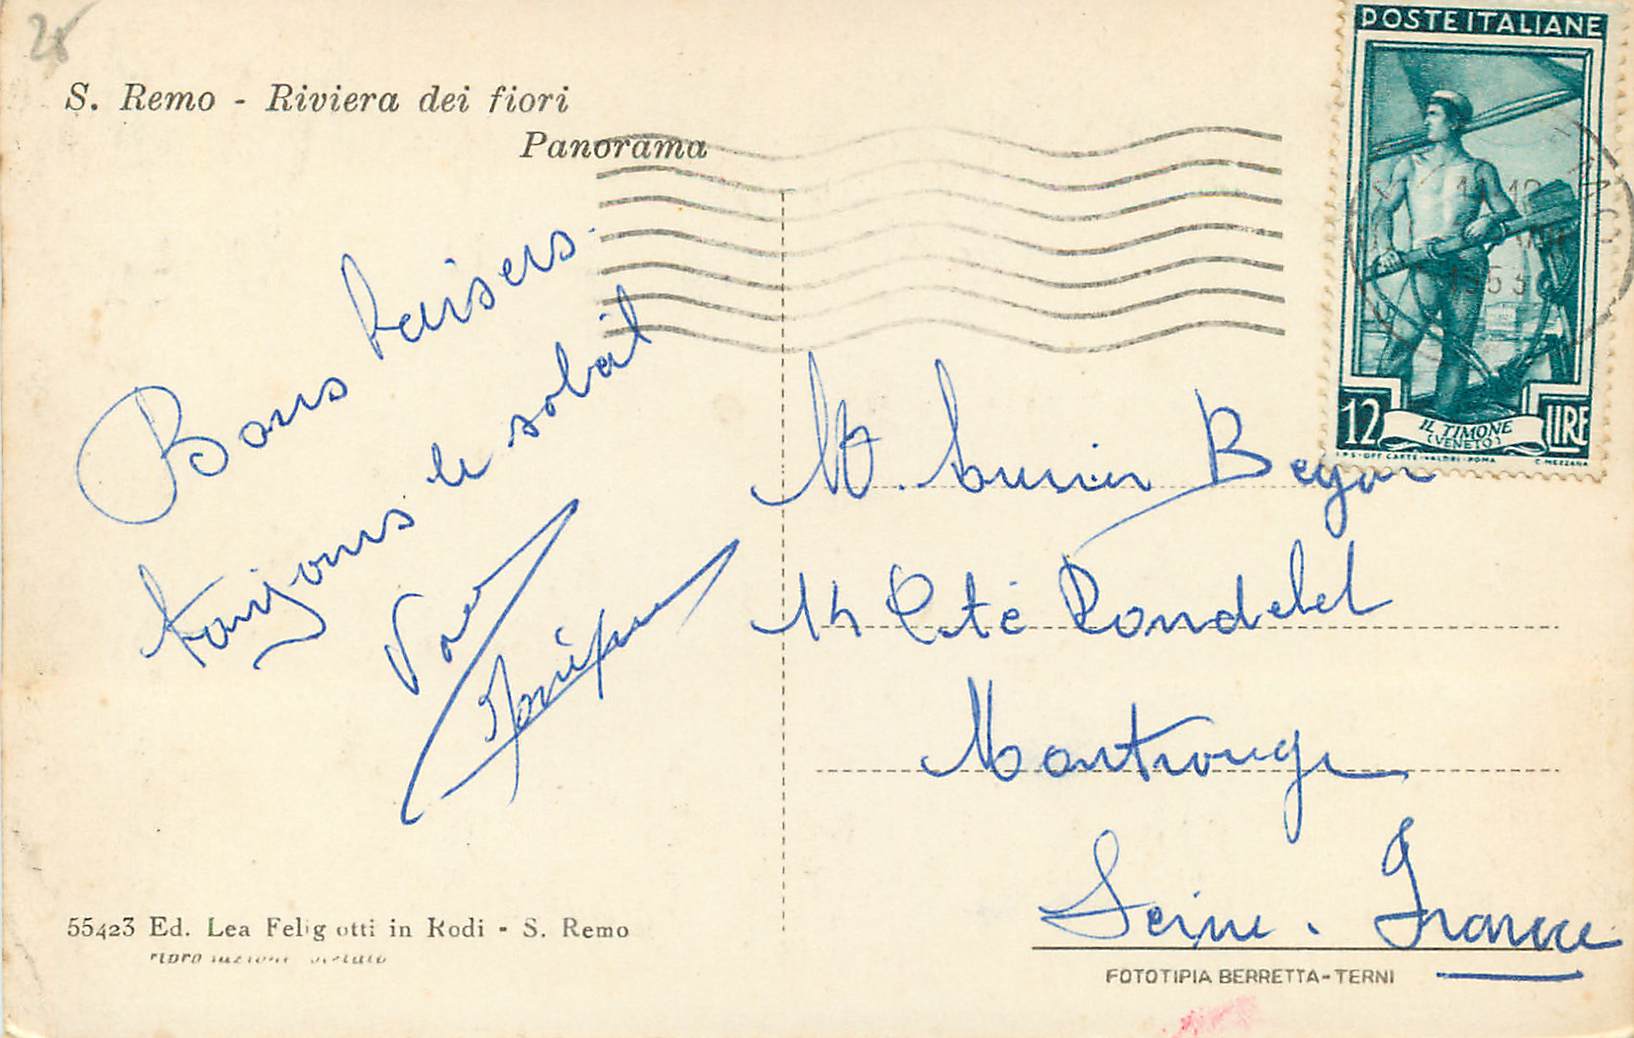 28
S. Remo - Riviera dei fiori
Panorama
Bons baisers.
toujours le soleil
POSTE ITALIANE
1953
12 LIRE
IL TIMONE
(VENETO)
I.P.S-OFF. CARTE-VALORI-ROMA C. MEZZANA
M. Lucien Beyar
14 Cité Rondelet
Montrouge
Seine. France
55423 Ed. Lea Feligotti in Rodi - S. Remo
riproduzione vietata
FOTOTIPIA BERRETTA-TERNI